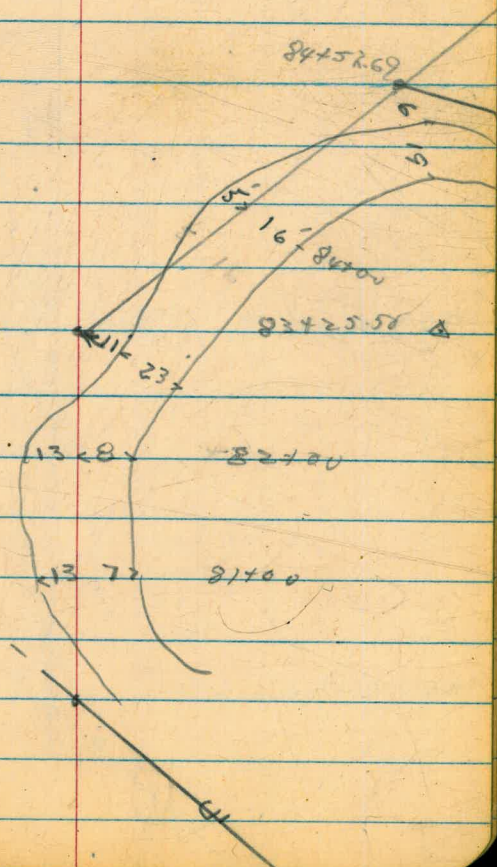 84+52.69
6
15
5
16
84+00
83+25.50 △
11
23
13 8
82+00
13 7
81+00